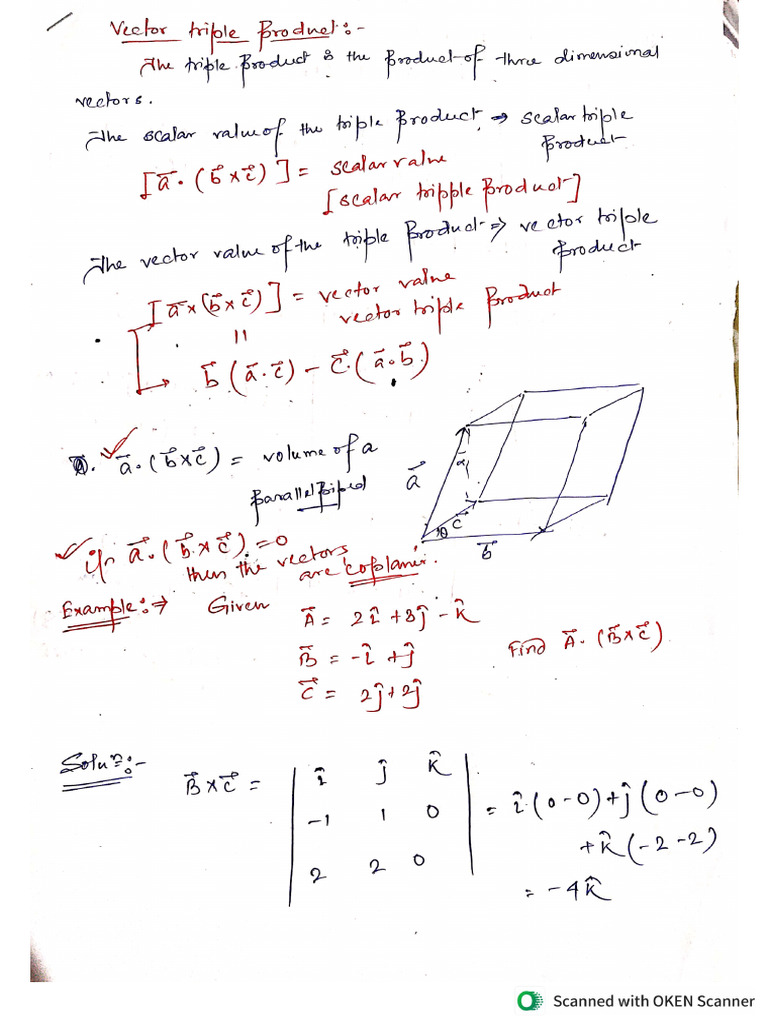 Vector triple Product:-
The triple Product is the Product of three dimensional
vectors.
The scalar value of the triple Product ⇒ scalar triple
Product
[a⃗ · (b⃗ × c⃗)] = scalar value
[scalar tripple Product]
The vector value of the triple Product ⇒ vector triple
Product
[a⃗ × (b⃗ × c⃗)] = vector value
vector triple Product
=
b⃗ (a⃗ · c⃗) - c⃗ · (a⃗ · b⃗)
a⃗ · (b⃗ × c⃗) = volume of a
Parallelpiped
a⃗
c⃗
θ
b⃗
if a⃗ · (b⃗ × c⃗) = 0
then the vectors
are 'coplaner'.
Example:→ Given
A⃗ = 2î + 3ĵ - k̂
B⃗ = -î + ĵ
Find A⃗ · (B⃗ × C⃗)
C⃗ = 2ĵ + 2ĵ
Solun:-
B⃗ × C⃗ = | î ĵ k̂ |
| -1 1 0 | = î(0-0) + ĵ(0-0)
+ k̂(-2-2)
| 2 2 0 |
= -4k̂
Scanned with OKEN Scanner